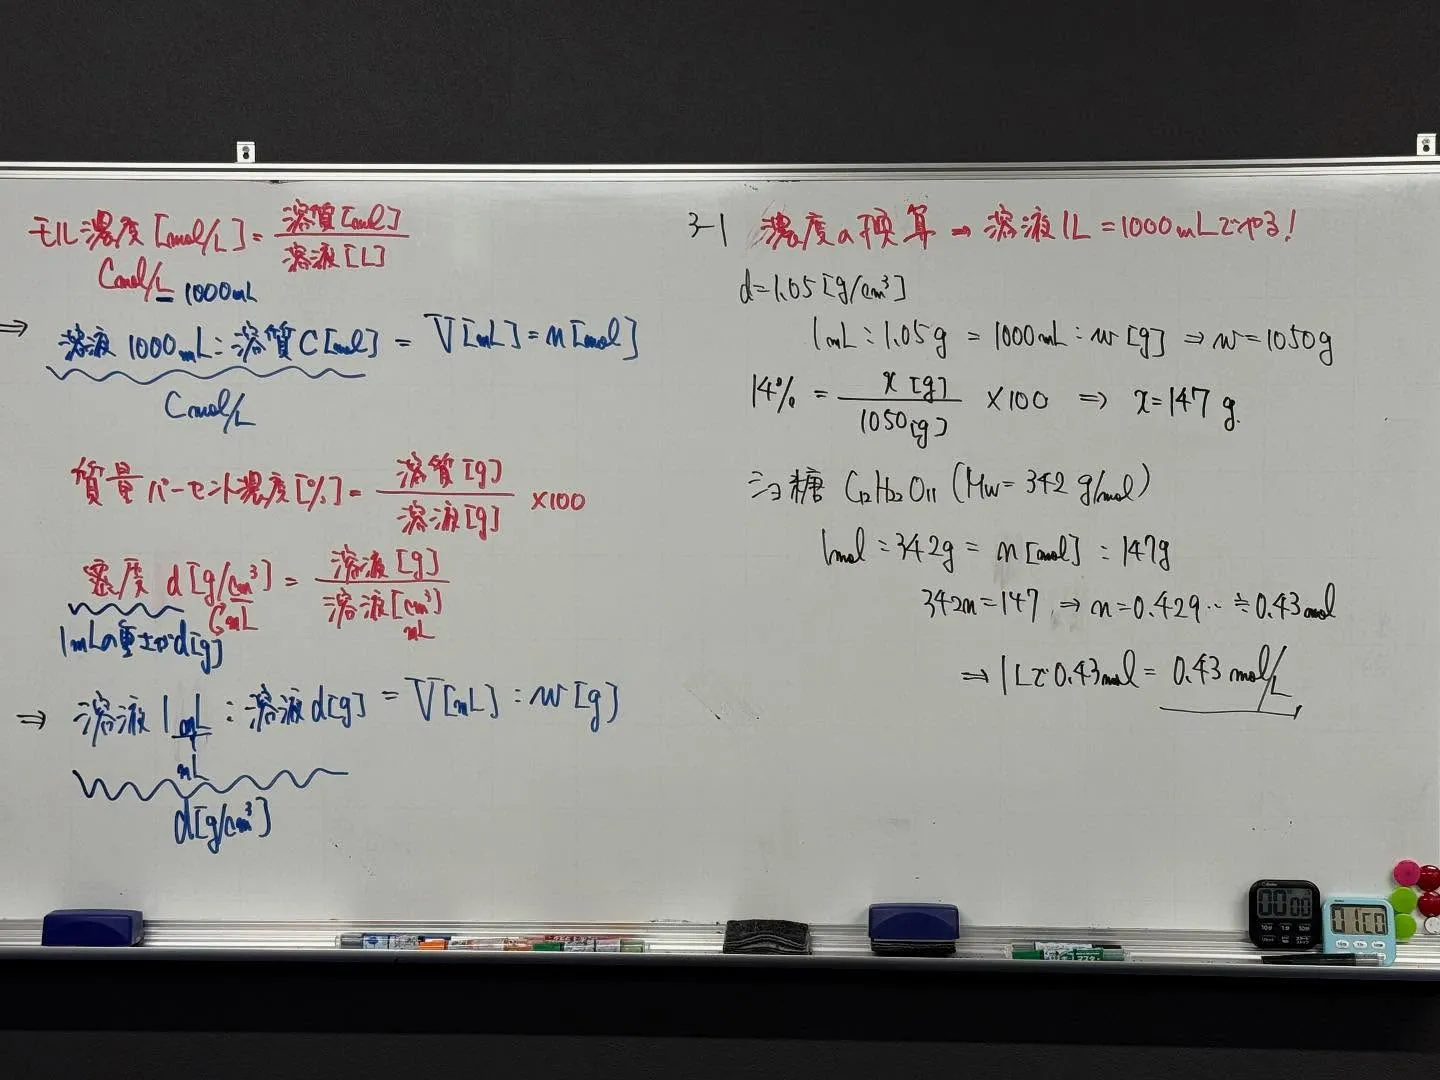 モル濃度[mol/L]=溶質[mol]/溶液[L]
Cmol/L = 1000mL
⇒ 溶液1000mL:溶質C[mol] = V[mL]=n[mol]
Cmol/L
質量パーセント濃度[%]=溶質[g]/溶液[g] ×100
密度 d[g/cm³] = 溶液[g]/溶液[cm³]
mL
mL
1mLの重さがd[g]
⇒ 溶液1mL:溶液d[g] = V[mL]:w[g]
mL
d[g/cm³]
3-1 濃度の換算→溶液1L=1000mLでやる!
d=1.05[g/cm³]
1mL:1.05g = 1000mL:w[g] ⇒ w=1050g
14% = x[g]/1050[g] ×100 ⇒ x=147g.
ショ糖 C12H22O11 (Mw=342g/mol)
1mol=342g = n[mol]:147g
342n=147 ⇒ n=0.429‥≒0.43mol
⇒1Lで0.43mol=0.43mol/L
00 00